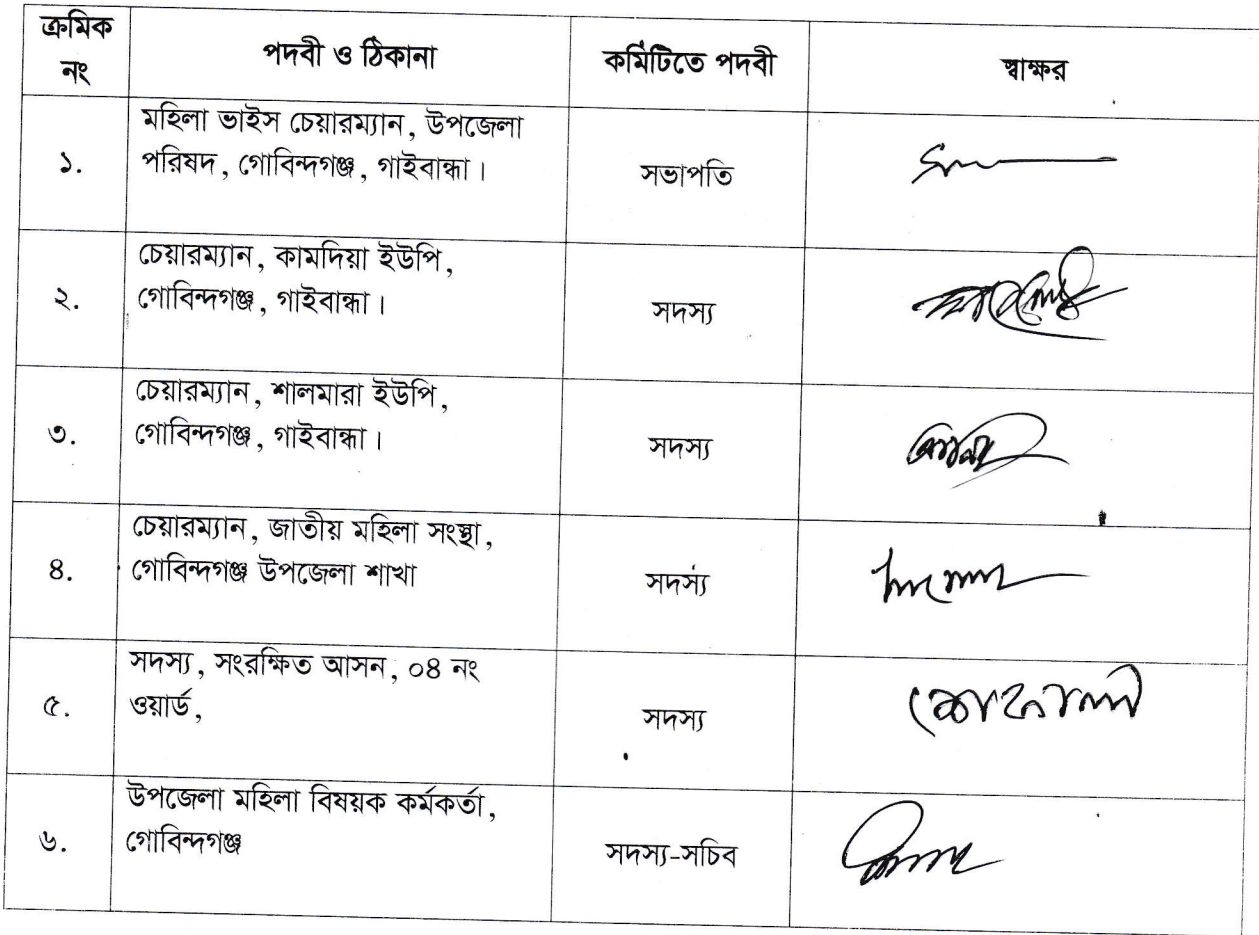 ক্রমিক
নং
পদবী ও ঠিকানা
কমিটিতে পদবী
স্বাক্ষর
১.
মহিলা ভাইস চেয়ারম্যান, উপজেলা
পরিষদ, গোবিন্দগঞ্জ, গাইবান্ধা।
সভাপতি
২.
চেয়ারম্যান, কামদিয়া ইউপি,
গোবিন্দগঞ্জ, গাইবান্ধা।
সদস্য
৩.
চেয়ারম্যান, শালমারা ইউপি,
গোবিন্দগঞ্জ, গাইবান্ধা।
সদস্য
৪.
চেয়ারম্যান, জাতীয় মহিলা সংস্থা,
গোবিন্দগঞ্জ উপজেলা শাখা
সদস্য
৫.
সদস্য, সংরক্ষিত আসন, ০৪ নং
ওয়ার্ড,
সদস্য
৬.
উপজেলা মহিলা বিষয়ক কর্মকর্তা,
গোবিন্দগঞ্জ
সদস্য-সচিব